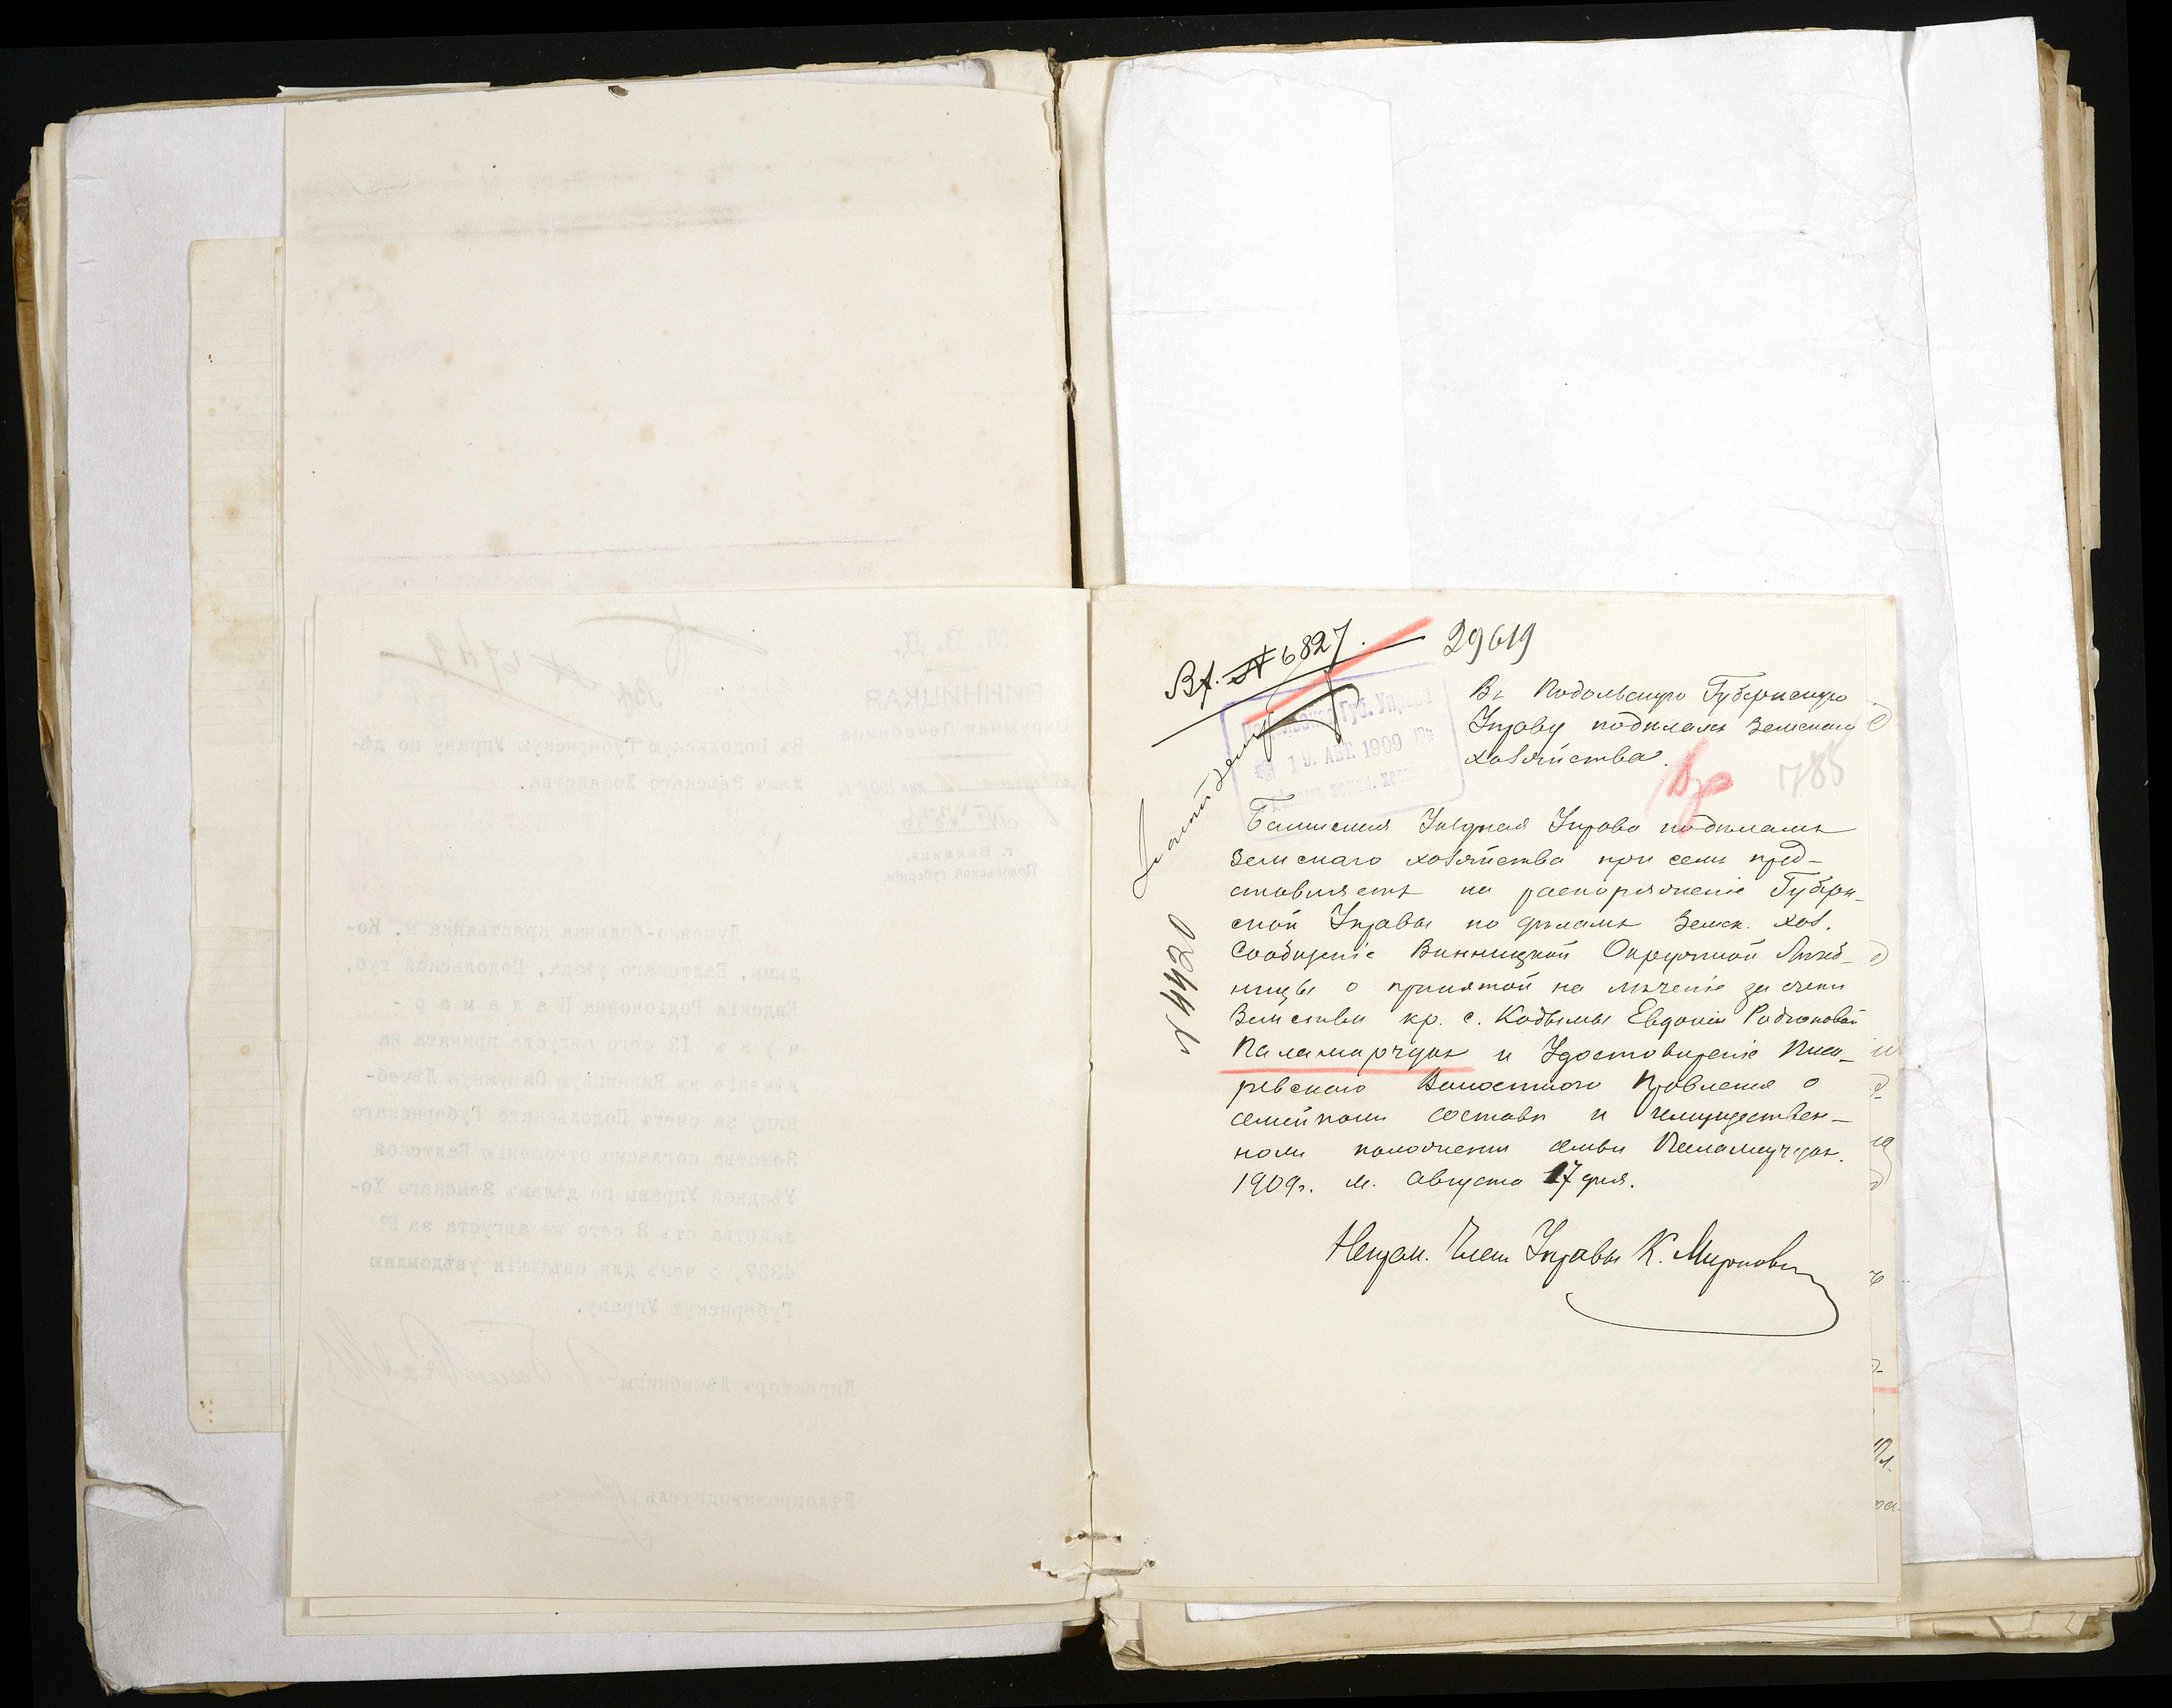 Вх. № 6827.
29619
Подольская Губ. Управа
19. АВГ. 1909
Въ Подольскую Губернскую
Управу по дѣламъ Земскаго
хозяйства.
785
Балтская Уѣздная Управа по дѣламъ
Земскаго хозяйства при семъ пред-
ставляетъ на распоряженіе Губерн-
ской Управы по дѣламъ Земск. хоз.
Сообщеніе Винницкой Окружной Лѣчеб-
ницы о принятой на лѣченіе за счетъ
Земства кр. с. Кодымы Евдокіи Родіоновой
Паламарчукъ и Удостовѣреніе Писа-
ревскаго Волостного Правленія о
семейномъ составѣ и имуществен-
номъ положеніи семьи Паламарчукъ.
1909 г. м. Августа 17 дня.
№ 4420
Непрем. Членъ Управы К. Мирковичъ
М. В. Д.
ВИННИЦКАЯ
Окружная Лечебница
г. Винница,
Подольской губерніи.
Въ Подольскую Губернскую Управу по дѣ-
ламъ Земскаго Хозяйства.
Душевно-больная крестьянка м. Ко-
дымъ, Балтскаго уѣзда, Подольской губ.
Евдокія Родіоновна П а л а м а р -
ч у к ъ 13 сего августа принята на
лѣченіе въ Винницкую Окружную Лѣчеб-
ницу за счетъ Подольскаго Губернскаго
Земства согласно отношенію Балтской
Уѣздной Управы по дѣламъ Земскаго Хо-
зяйства отъ 8 сего же августа за №
4337, о чемъ для свѣдѣнія увѣдомляю
Губернскую Управу.
Директоръ Лѣчебницы
Дѣлопроизводитель